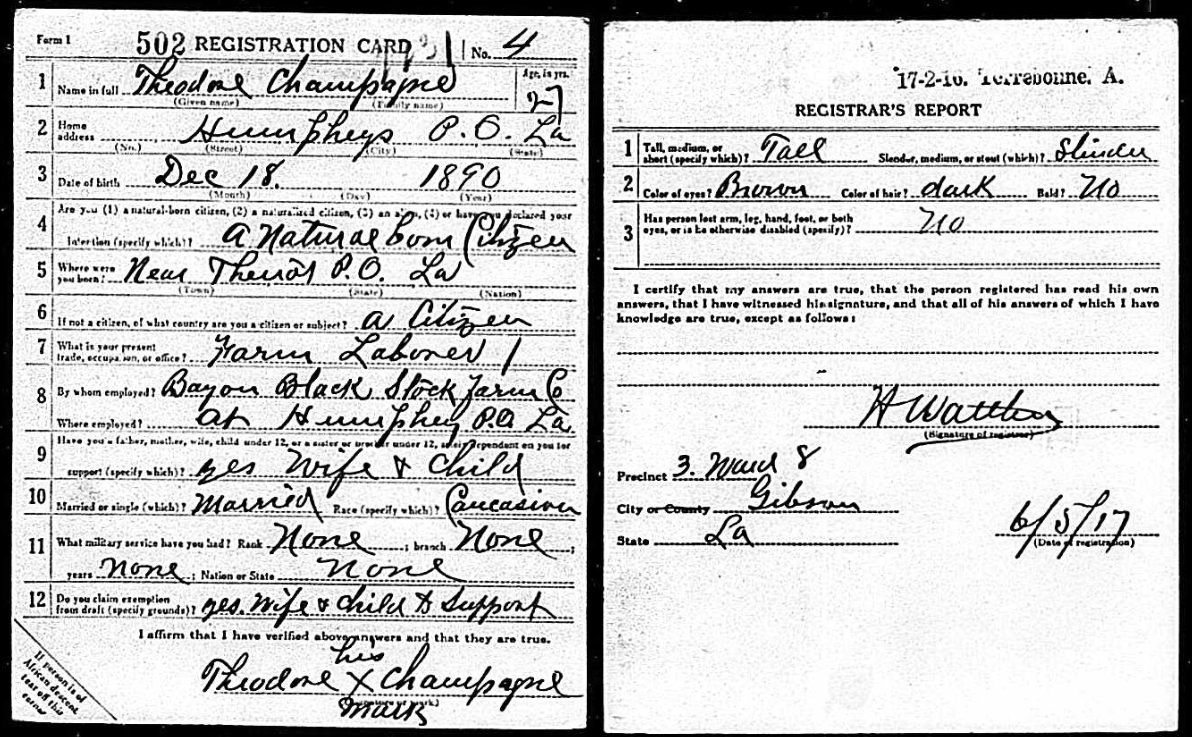 Form 1 502 REGISTRATION CARD No. 4
1 Name in full Theodore Champagne Age, in yrs.
(Given name) (Family name) 27
2 Home address Humpheys P.O. La
(No.) (Street) (City) (State)
3 Date of birth Dec 18. 1890
(Month) (Day) (Year)
4 Are you (1) a natural-born citizen, (2) a naturalized citizen, (3) an alien, (4) or have you declared your
intention (specify which)? a Natural born Citizen
5 Where were you born? Near Theriot P.O. La
(Town) (State) (Nation)
6 If not a citizen, of what country are you a citizen or subject? a Citizen
7 What is your present trade, occupation, or office? Farm Laborer 1
8 By whom employed? Bayou Black Stock Farm Co
Where employed? at Humphey P.O. La.
9 Have you a father, mother, wife, child under 12, or a sister or brother under 12, solely dependent on you for
support (specify which)? yes Wife & Child
10 Married or single (which)? Married Race (specify which)? Caucasian
11 What military service have you had? Rank None ; branch None ;
years None ; Nation or State None
12 Do you claim exemption from draft (specify grounds)? yes. Wife & Child to Support
I affirm that I have verified above answers and that they are true.
his
Theodore X Champagne
(Signature or mark)
mark
If person is of
African descent,
tear off this
corner
17-2-16. Terrebonne, A.
REGISTRAR'S REPORT
1 Tall, medium, or short (specify which)? Tall Slender, medium, or stout (which)? Slinder
2 Color of eyes? Brown Color of hair? dark Bald? No
3 Has person lost arm, leg, hand, foot, or both
eyes, or is he otherwise disabled (specify)? No
I certify that my answers are true, that the person registered has read his own
answers, that I have witnessed his signature, and that all of his answers of which I have
knowledge are true, except as follows:
(Signature of registrar)
Precinct 3. Ward 8
City or County Gibson
State La
6/5/17
(Date of registration)